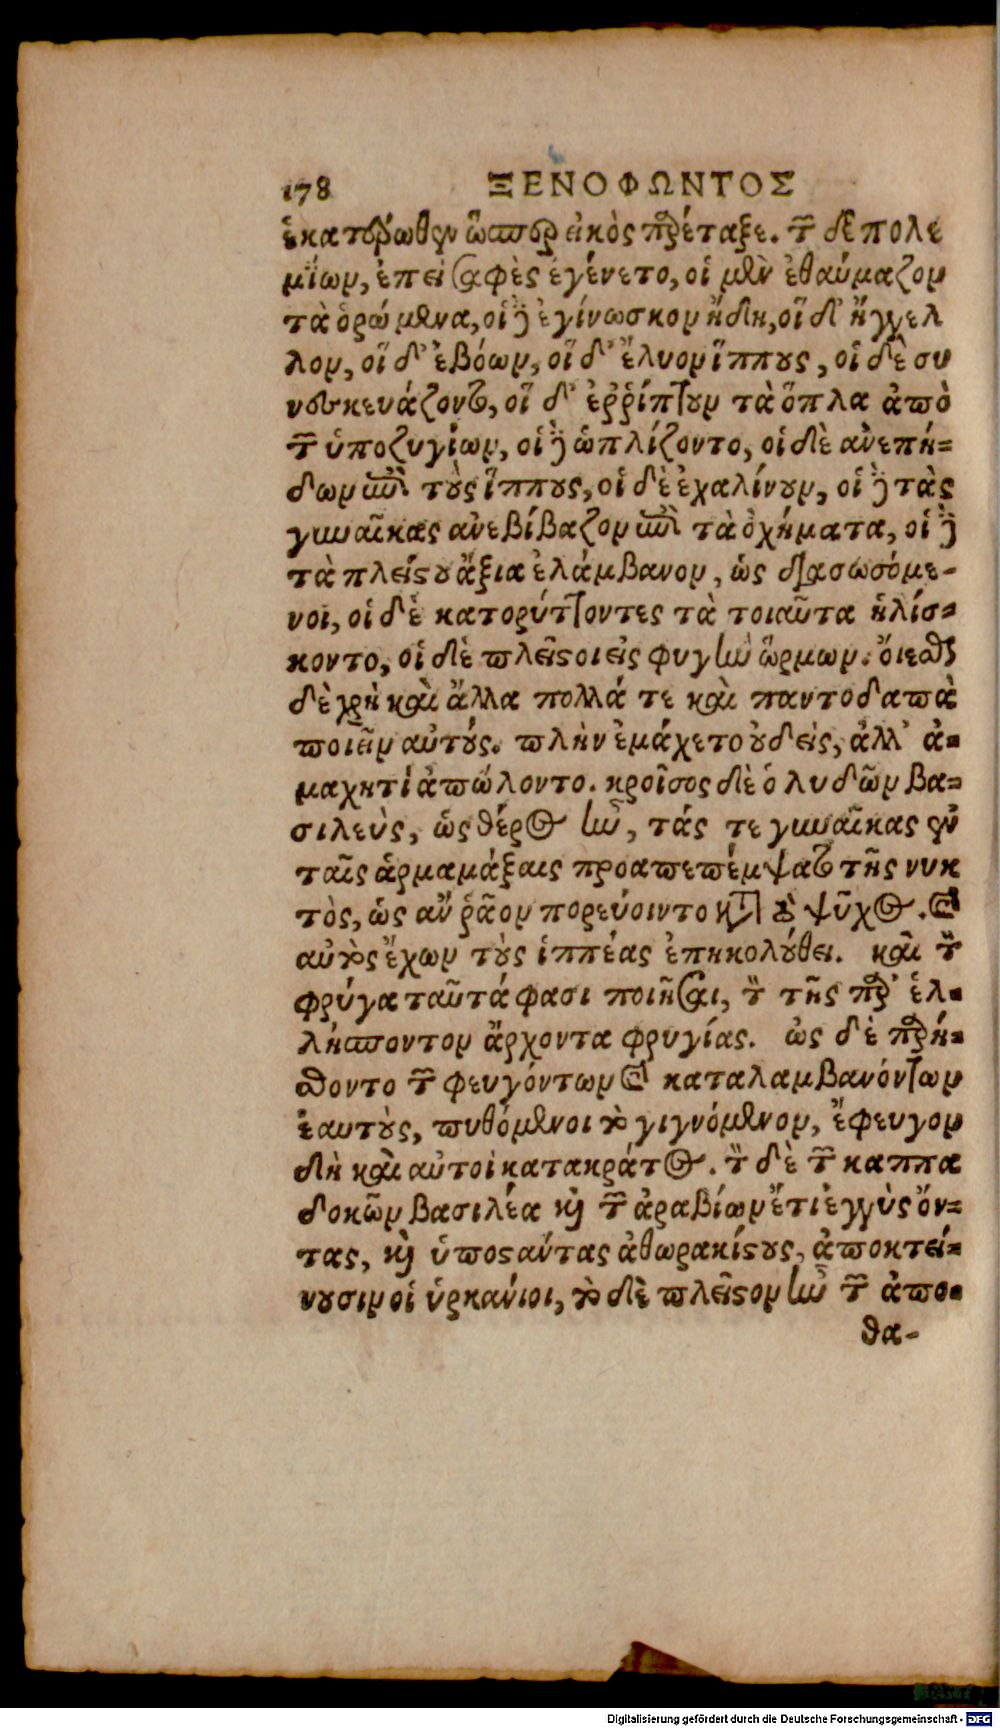 178 ΞΕΝΟΦΩΝΤΟΣ
ἑκατέρωθεν ὥσπερ εἰκὸς προσέταξε. τῶν δὲ πολε
μίων, ἐπεὶ σαφὲς ἐγένετο, οἱ μὲν ἐθαύμαζον
τὰ ὁρώμενα, οἱ δὲ ἐγίνωσκον ἤδη, οἵ δ' ἤγγελ
λον, οἵ δ' ἐβόων, οἵ δ' ἔλυον ἵππους, οἱ δὲ συ
νεσκευάζοντο, οἵ δ' ἐῤῥίπτουν τὰ ὅπλα ἀπὸ
τῶν ὑποζυγίων, οἱ δὲ ὡπλίζοντο, οἱ δὲ ἀνεπή=
δων ἐπὶ τοὺς ἵππους, οἱ δὲ ἐχαλίνουν, οἱ δὲ τὰς
γυναῖκας ἀνεβίβαζον ἐπὶ τὰ ὀχήματα, οἱ δὲ
τὰ πλείστου ἄξια ἐλάμβανον, ὡς διασωσόμε-
νοι, οἱ δὲ κατορύττοντες τὰ τοιαῦτα ἡλίσ=
κοντο, οἱ δὲ πλεῖστοι εἰς φυγὴν ὥρμων. οἴεσθαι
δὲ χρὴ καὶ ἄλλα πολλά τε καὶ παντοδαπὰ
ποιεῖν αὐτούς. πλὴν ἐμάχετο οὐδεὶς, ἀλλ' ἀ=
μαχητὶ ἀπώλοντο. κροῖσος δὲ ὁ λυδῶν βα=
σιλεὺς, ὡς θέρος ἦν, τάς τε γυναῖκας ἐν
ταῖς ἁρμαμάξαις προαπεπέμψατο τῆς νυκ
τὸς, ὡς ἂν ῥᾷον πορεύοιντο κατὰ τὸ ψῦχος. καὶ
αὐτὸς ἔχων τοὺς ἱππέας ἐπηκολούθει. καὶ τὸν
φρύγα ταῦτά φασι ποιῆσαι, τὸν τῆς παρ' ἑλ=
λήσποντον ἄρχοντα φρυγίας. ὡς δὲ παρῄ=
σθοντο τῶν φευγόντων καὶ καταλαμβανόντων
ἑαυτοὺς, πυθόμενοι τὸ γιγνόμενον, ἔφευγον
δὴ καὶ αὐτοὶ κατακράτος. τὸν δὲ τῶν καππα
δοκῶν βασιλέα καὶ τῶν ἀραβίων ἔτι ἐγγὺς ὄν=
τας, καὶ ὑποστάντας ἀθωρακίστους, ἀποκτεί=
νουσιν οἱ ὑρκάνιοι, τὸ δὲ πλεῖστον ἦν τῶν ἀπο=
θα-
Digitalisierung gefördert durch die Deutsche Forschungsgemeinschaft - DFG